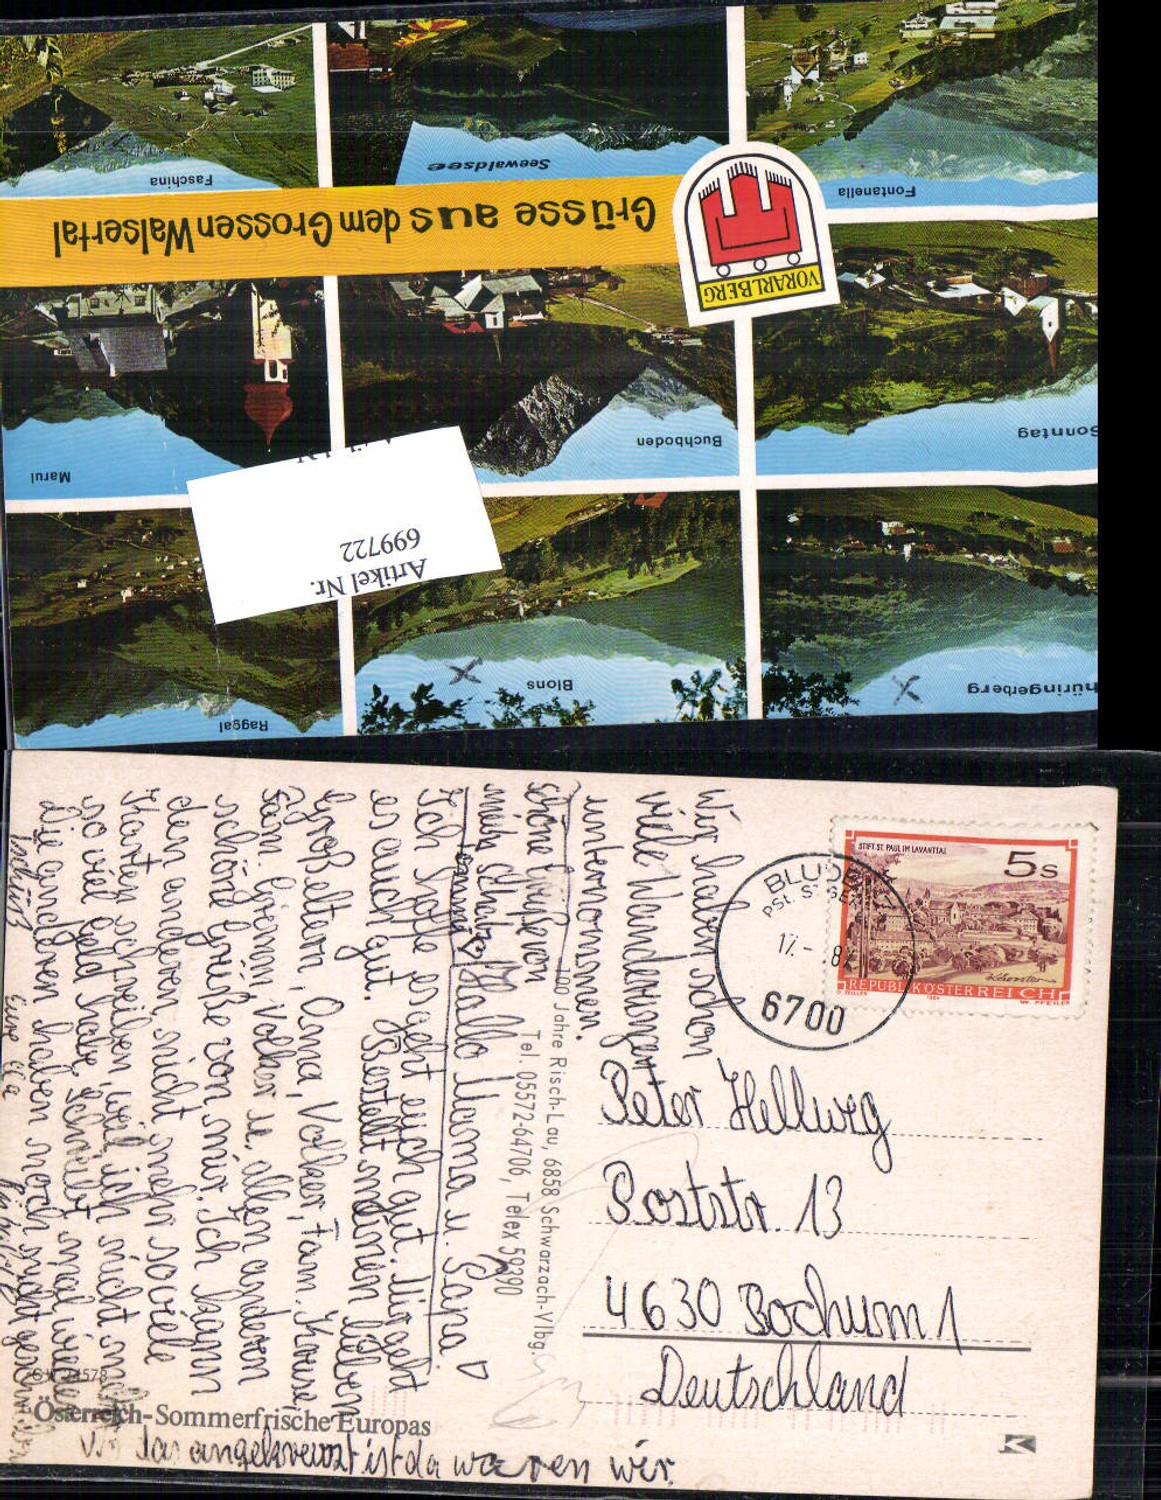 Faschina
Seewaldsee
Fontanella
Grüsse aus dem Grossen Walsertal
VORARLBERG
Marul
Buchboden
Sonntag
Artikel Nr.
699722
Raggal
Blons
hüringerberg
STIFT ST. PAUL IM LAVANTTAL
5s
REPUBLIK ÖSTERREICH
1984
W. PFEILER
BLUDE
17.- 8
6700
Wir haben schon
viele Wanderungen
unternommen.
schöne Grüße von
100 Jahre Risch-Lau, 6858 Schwarzach-Vlbg.
Tel. 05572-64706, Telex 59390
Hallo Mama u. Papa ♡
Ich hoffe es geht euch gut. Mir geht
es auch gut. Bestellt meinen lieben
Großeltern, Oma, Volker, Fam. Krause,
Fam. Volker u. allen anderen
schöne Grüße von mir. Ich kann
den anderen nicht mehr soviele
Karten schreiben, weil ich nicht mehr
so viel Geld habe. Schreibt mal wieder
Die anderen haben noch nicht
Eure
Peter Hellweg
Poststr 13
4630 Bochum 1
Deutschland
Österreich-Sommerfrische Europas
das angekreuzt ist da waren wir.